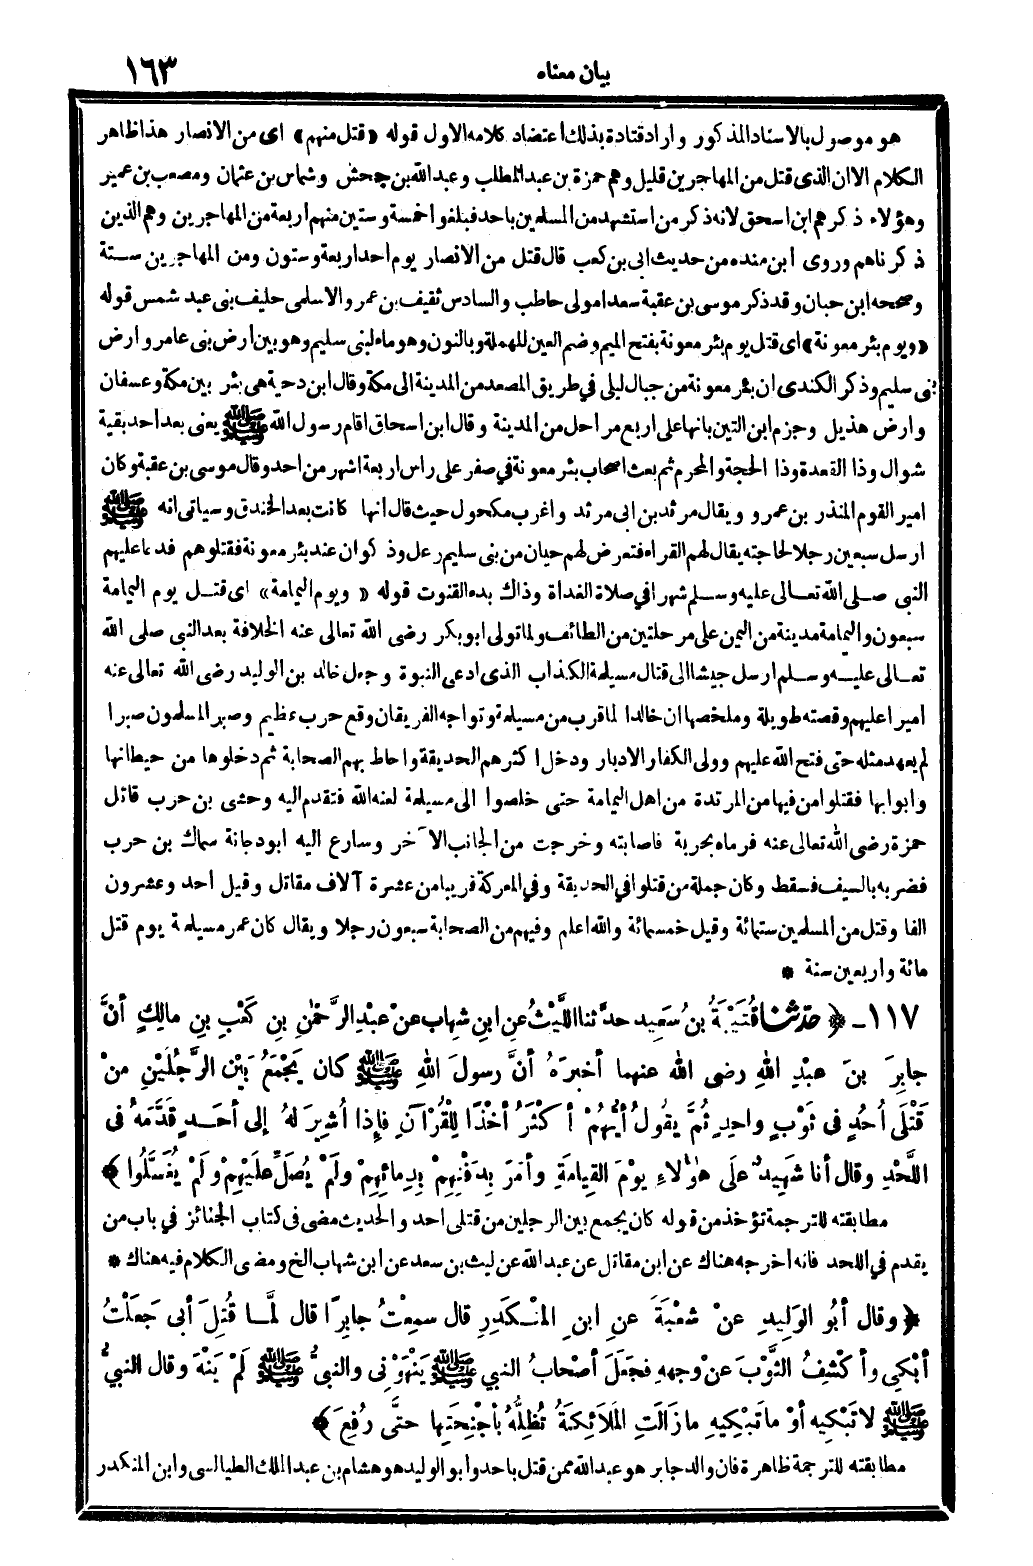 بيان معناه
١٦٣
هو موصول بالاسناد المذكور واراد قتادة بذلك اعتضاد كلامه الاول قوله «قتل منهم» اى من الانصار هذا ظاهر
الكلام الا ان الذى قتل من المهاجرين قليل وهم حمزة بن عبد المطلب وعبد الله بن جحش وشماس بن عثمان ومصعب بن عمير
وهؤلاء ذكرهم ابن اسحق لانه ذكر من استشهد من المسلمين باحد فبلغوا خمسة وستين منهم اربعة من المهاجرين وهم الذين
ذكرناهم وروى ابن منده من حديث ابى بن كعب قال قتل من الانصار يوم احد اربعة وستون ومن المهاجرين ستة
وصححه ابن حبان وقد ذكر موسى بن عقبة سعدا مولى حاطب والسادس ثقيف بن عمرو الاسلمى حليف بنى عبد شمس قوله
«ويوم بئر معونة» اى قتل يوم بئر معونة بفتح الميم وضم العين المهملة وبالنون وهو ماء لبنى سليم وهو بين أرض بنى عامر وارض
بنى سليم وذكر الكندى ان بئر معونة من جبال ليلى في طريق المصعد من المدينة الى مكة وقال ابن دحية هى بئر بين مكة وعسفان
وارض هذيل وجزم ابن التين بانها على اربع مراحل من المدينة وقال ابن اسحاق اقام رسول الله ﷺ يعنى بعد احد بقية
شوال وذا القعدة وذا الحجة والمحرم ثم بعث اصحاب بئر معونة في صفر على راس اربعة اشهر من احد وقال موسى بن عقبة وكان
امير القوم المنذر بن عمرو ويقال مرثد بن ابى مرثد واغرب مكحول حيث قال انها كانت بعد الخندق وسياتى انه ﷺ
ارسل سبعين رجلا لحاجته يقال لهم القراء فتعرض لهم حيان من بنى سليم رعل وذكوان عند بئر معونة فقتلوهم فدعا عليهم
النبى صلى الله تعالى عليه وسلم شهرا في صلاة الغداة وذاك بدء القنوت قوله «ويوم اليمامة» اى قتل يوم اليمامة
سبعون واليمامة مدينة من اليمن على مرحلتين من الطائف ولما تولى ابو بكر رضى الله تعالى عنه الخلافة بعد النبى صلى الله
تعالى عليه وسلم ارسل جيشا الى قتال مسيلمة الكذاب الذى ادعى النبوة وجعل خالد بن الوليد رضى الله تعالى عنه
اميرا عليهم وقصته طويلة وملخصها ان خالدا لما قرب من مسيلمة وتواجه الفريقان وقع حرب عظيم وصبر المسلمون صبرا
لم يعهد مثله حتى فتح الله عليهم وولى الكفار الادبار ودخل اكثرهم الحديقة واحاط بهم الصحابة ثم دخلوها من حيطانها
وابوابها فقتلوا من فيها من المرتدة من اهل اليمامة حتى خلصوا الى مسيلمة لعنه الله فتقدم اليه وحشى بن حرب قاتل
حمزة رضى الله تعالى عنه فرماه بحربة فاصابته وخرجت من الجانب الآخر وسارع اليه ابو دجانة سماك بن حرب
فضربه بالسيف فسقط وكان جملة من قتلوا في الحديقة وفي المعركة قريبا من عشرة آلاف مقاتل وقيل احد وعشرون
الفا وقتل من المسلمين ستمائة وقيل خمسمائة والله اعلم وفيهم من الصحابة سبعون رجلا ويقال كان عمر مسيلمة يوم قتل
مائة واربعين سنة *
١١٧ - ﴿ حدثنا قُتَيْبَةُ بنُ سَعِيدٍ حدَّثنا اللَّيْثُ عنِ ابنِ شِهابٍ عنْ عبْدِ الرَّحْمٰنِ بنِ كَعْبِ بنِ مالِكٍ أنَّ
جابِرَ بنَ عبْدِ اللهِ رضى الله عنهما أخبرَهُ أنَّ رسولَ اللهِ ﷺ كان يَجْمَعُ بَيْنَ الرَّجُلَيْنِ مِنْ
قَتْلَى أُحُدٍ فى ثَوْبٍ واحِدٍ ثُمَّ يقُولُ أيُّهُمْ أكْثَرُ أخْذًا لِلْقُرْآنِ فإذا أُشِيرَ لهُ إلى أحَدٍ قَدَّمَهُ فى
اللَّحْدِ وقال أنا شَهِيدٌ علَى هٰؤُلاءِ يوْمَ القِيامَةِ وأمَرَ بِدَفْنِهِمْ بِدِمائِهِمْ ولَمْ يُصَلِّ علَيْهِمْ ولَمْ يُغَسَّلُوا ﴾
مطابقته للترجمة تؤخذ من قوله كان يجمع بين الرجلين من قتلى احد والحديث مضى فى كتاب الجنائز في باب من
يقدم في اللحد فانه أخرجه هناك عن ابن مقاتل عن عبد الله عن ليث بن سعد عن ابن شهاب الخ ومضى الكلام فيه هناك *
﴿ وقال أبُو الوَلِيدِ عنْ شُعْبَةَ عنِ ابنِ المُنْكَدِرِ قال سمِعْتُ جابِرًا قال لَمَّا قُتِلَ أبى جَعَلْتُ
أبْكِى وأكْشِفُ الثَّوْبَ عنْ وجهِهِ فجَعَلَ أصْحابُ النبي ﷺ يَنْهَوْنِى والنبىُّ ﷺ لَمْ يَنْهَ وقال النبيُّ
ﷺ لا تَبْكِيهِ أوْ ما تَبْكِيهِ ما زَالَتِ المَلَائِكَةُ تُظِلُّهُ بأجْنِحَتِها حتَّى رُفِعَ ﴾
مطابقته للترجمة ظاهرة فان والد جابر هو عبد الله ممن قتل باحد وابو الوليد هو هشام بن عبد الملك الطيالسى وابن المنكدر